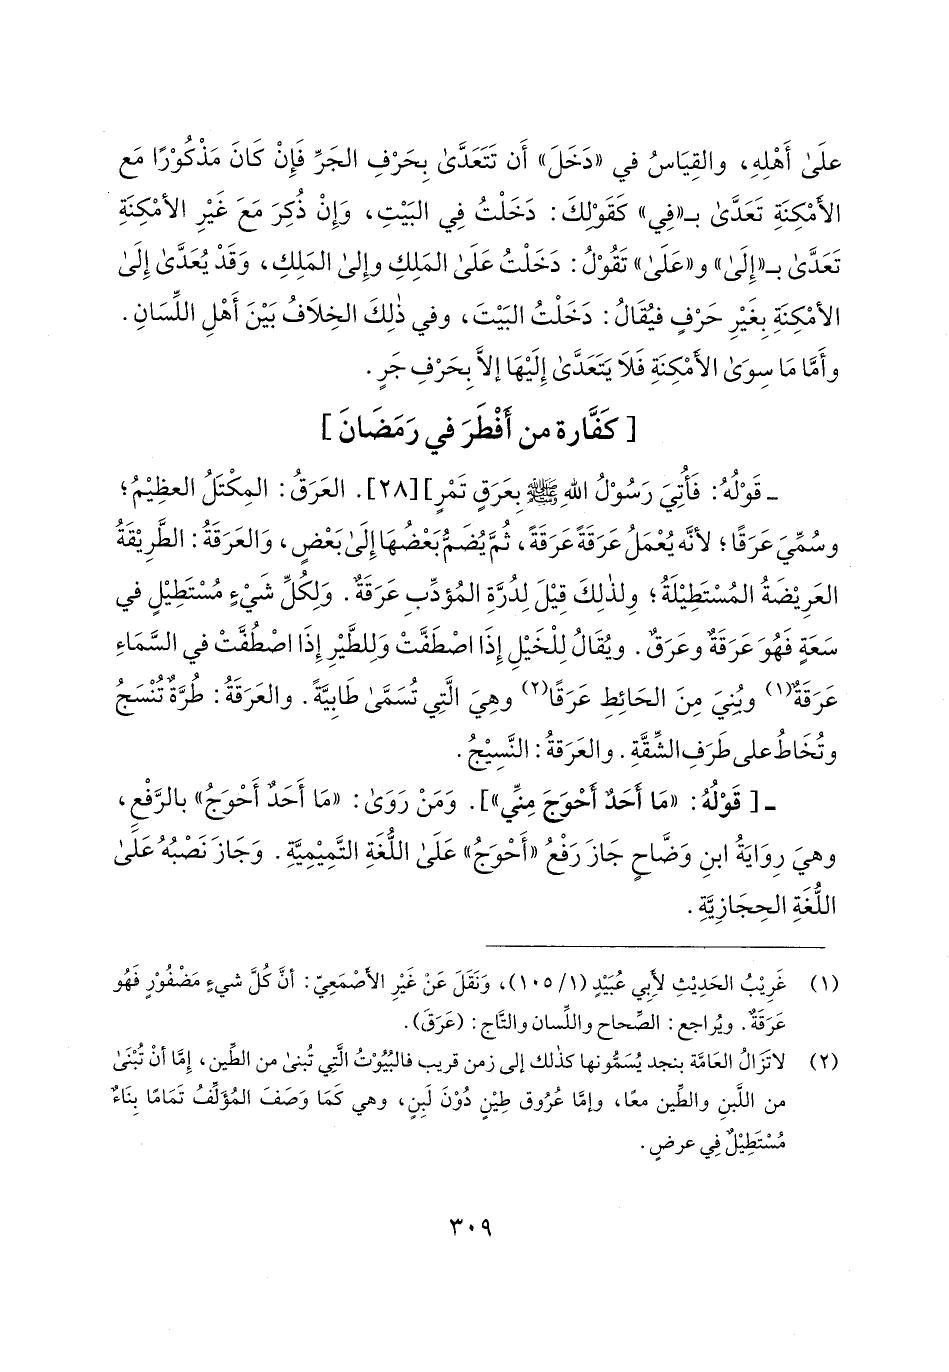 عَلَىٰ أَهْلِهِ، والقِيَاسُ في «دَخَلَ» أَن تَتَعَدَّىٰ بِحَرْفِ الجَرِّ فَإِنْ كَانَ مَذْكُورًا مَع
الأَمْكِنَةِ تَعَدَّىٰ بـ«في» كَقَوْلِكَ: دَخَلْتُ فِي البَيْتِ، وَإِنْ ذُكِرَ مَعَ غَيْرِ الأَمْكِنَةِ
تَعَدَّىٰ بـ«إِلَىٰ» و«عَلَىٰ» تَقُوْلُ: دَخَلْتُ عَلَىٰ المَلِكِ وإِلىٰ المَلِكِ، وَقَدْ يُعَدَّىٰ إِلَىٰ
الأَمْكِنَةِ بِغَيْرِ حَرْفٍ فيُقَالُ: دَخَلْتُ البَيْتَ، وفي ذٰلِكَ الخِلَافُ بَيْنَ أَهْلِ اللِّسَانِ.
وأَمَّا مَا سِوَىٰ الأَمْكِنَةِ فَلَا يَتَعَدَّىٰ إِلَيْهَا إلاَّ بِحَرْفِ جَرٍ.
[كَفَّارة من أَفْطَرَ في رَمَضَانَ]
ـ قَوْلُهُ: فَأُتِيَ رَسُوْلُ اللهِ ﷺ بِعَرَقِ تَمْرٍ][٢٨]. العَرَقُ: المِكْتَلُ العظِيْمُ؛
وسُمِّيَ عَرَقًا؛ لأنَّه يُعْمَلُ عَرَقَةً عَرَقَةً، ثُمَّ يُضَمُّ بَعْضُهَا إِلَىٰ بَعْضٍ، وَالعَرَقَةُ: الطَّرِيْقَةُ
العَرِيْضَةُ المُسْتَطِيْلَةُ؛ ولذٰلكَ قِيْلَ لِدُرَّةِ المُؤدِّبِ عَرَقَةٌ. وَلِكُلِّ شَيْءٍ مُسْتَطِيْلٍ في
سَعَةٍ فَهُوَ عَرَقَةٌ وعَرَقٌ. ويُقَالُ لِلْخَيْلِ إِذَا اصْطَفَّتْ وَلِلطَّيْرِ إِذَا اصْطُفَّتْ في السَّمَاءِ
عَرَقَةٌ(١) وبُنِيَ مِنَ الحَائِطِ عَرَقًا(٢) وهِيَ الَّتِي تُسَمَّىٰ طَابِيَّةً. والعَرَقَةُ: طُرَّةٌ تُنْسَجُ
وتُخَاطُ على طَرَفِ الشِّقَّةِ. والعَرَقةُ: النَّسِيْجُ.
ـ [قَوْلُهُ: «مَا أَحَدٌ أَحْوَجَ مِنِّي»]. وَمَنْ رَوَىٰ: «مَا أَحَدٌ أَحْوَجُ» بالرَّفْعِ،
وهيَ رِوَايَةُ ابنِ وَضَّاحٍ جَازَ رَفْعُ «أَحْوَجُ» عَلَىٰ اللُّغَةِ التَّمِيْمِيَّةِ. وَجَازَ نَصْبُهُ عَلَىٰ
اللُّغَةِ الحِجَازِيَّةِ.
(١) غَرِيْبُ الحَدِيْثِ لأَبي عُبَيْدٍ (١/ ١٠٥)، وَنَقَلَ عَنْ غَيْرِ الأَصْمَعِيّ: أنَّ كُلَّ شيءٍ مَضْفُوْرٍ فَهُو
عَرَقَةٌ. ويُراجع: الصِّحاح واللِّسان والتَّاج: (عَرَقَ).
(٢) لا تزَالُ العَامَّة بنجد يُسَمُّونها كذٰلك إلى زمن قريب فالبُيُوْتُ الَّتِي تُبنىٰ من الطِّين، إمَّا أنْ تُبْنَىٰ
من اللَّبن والطِّين معًا، وإمَّا عُرُوق طِيْنٍ دُوْنَ لَبِنٍ، وهي كَمَا وَصَفَ المُؤلِّفُ تَمَامًا بِنَاءٌ
مُسْتَطِيْلٌ فِي عرضٍ.
٣٠٩